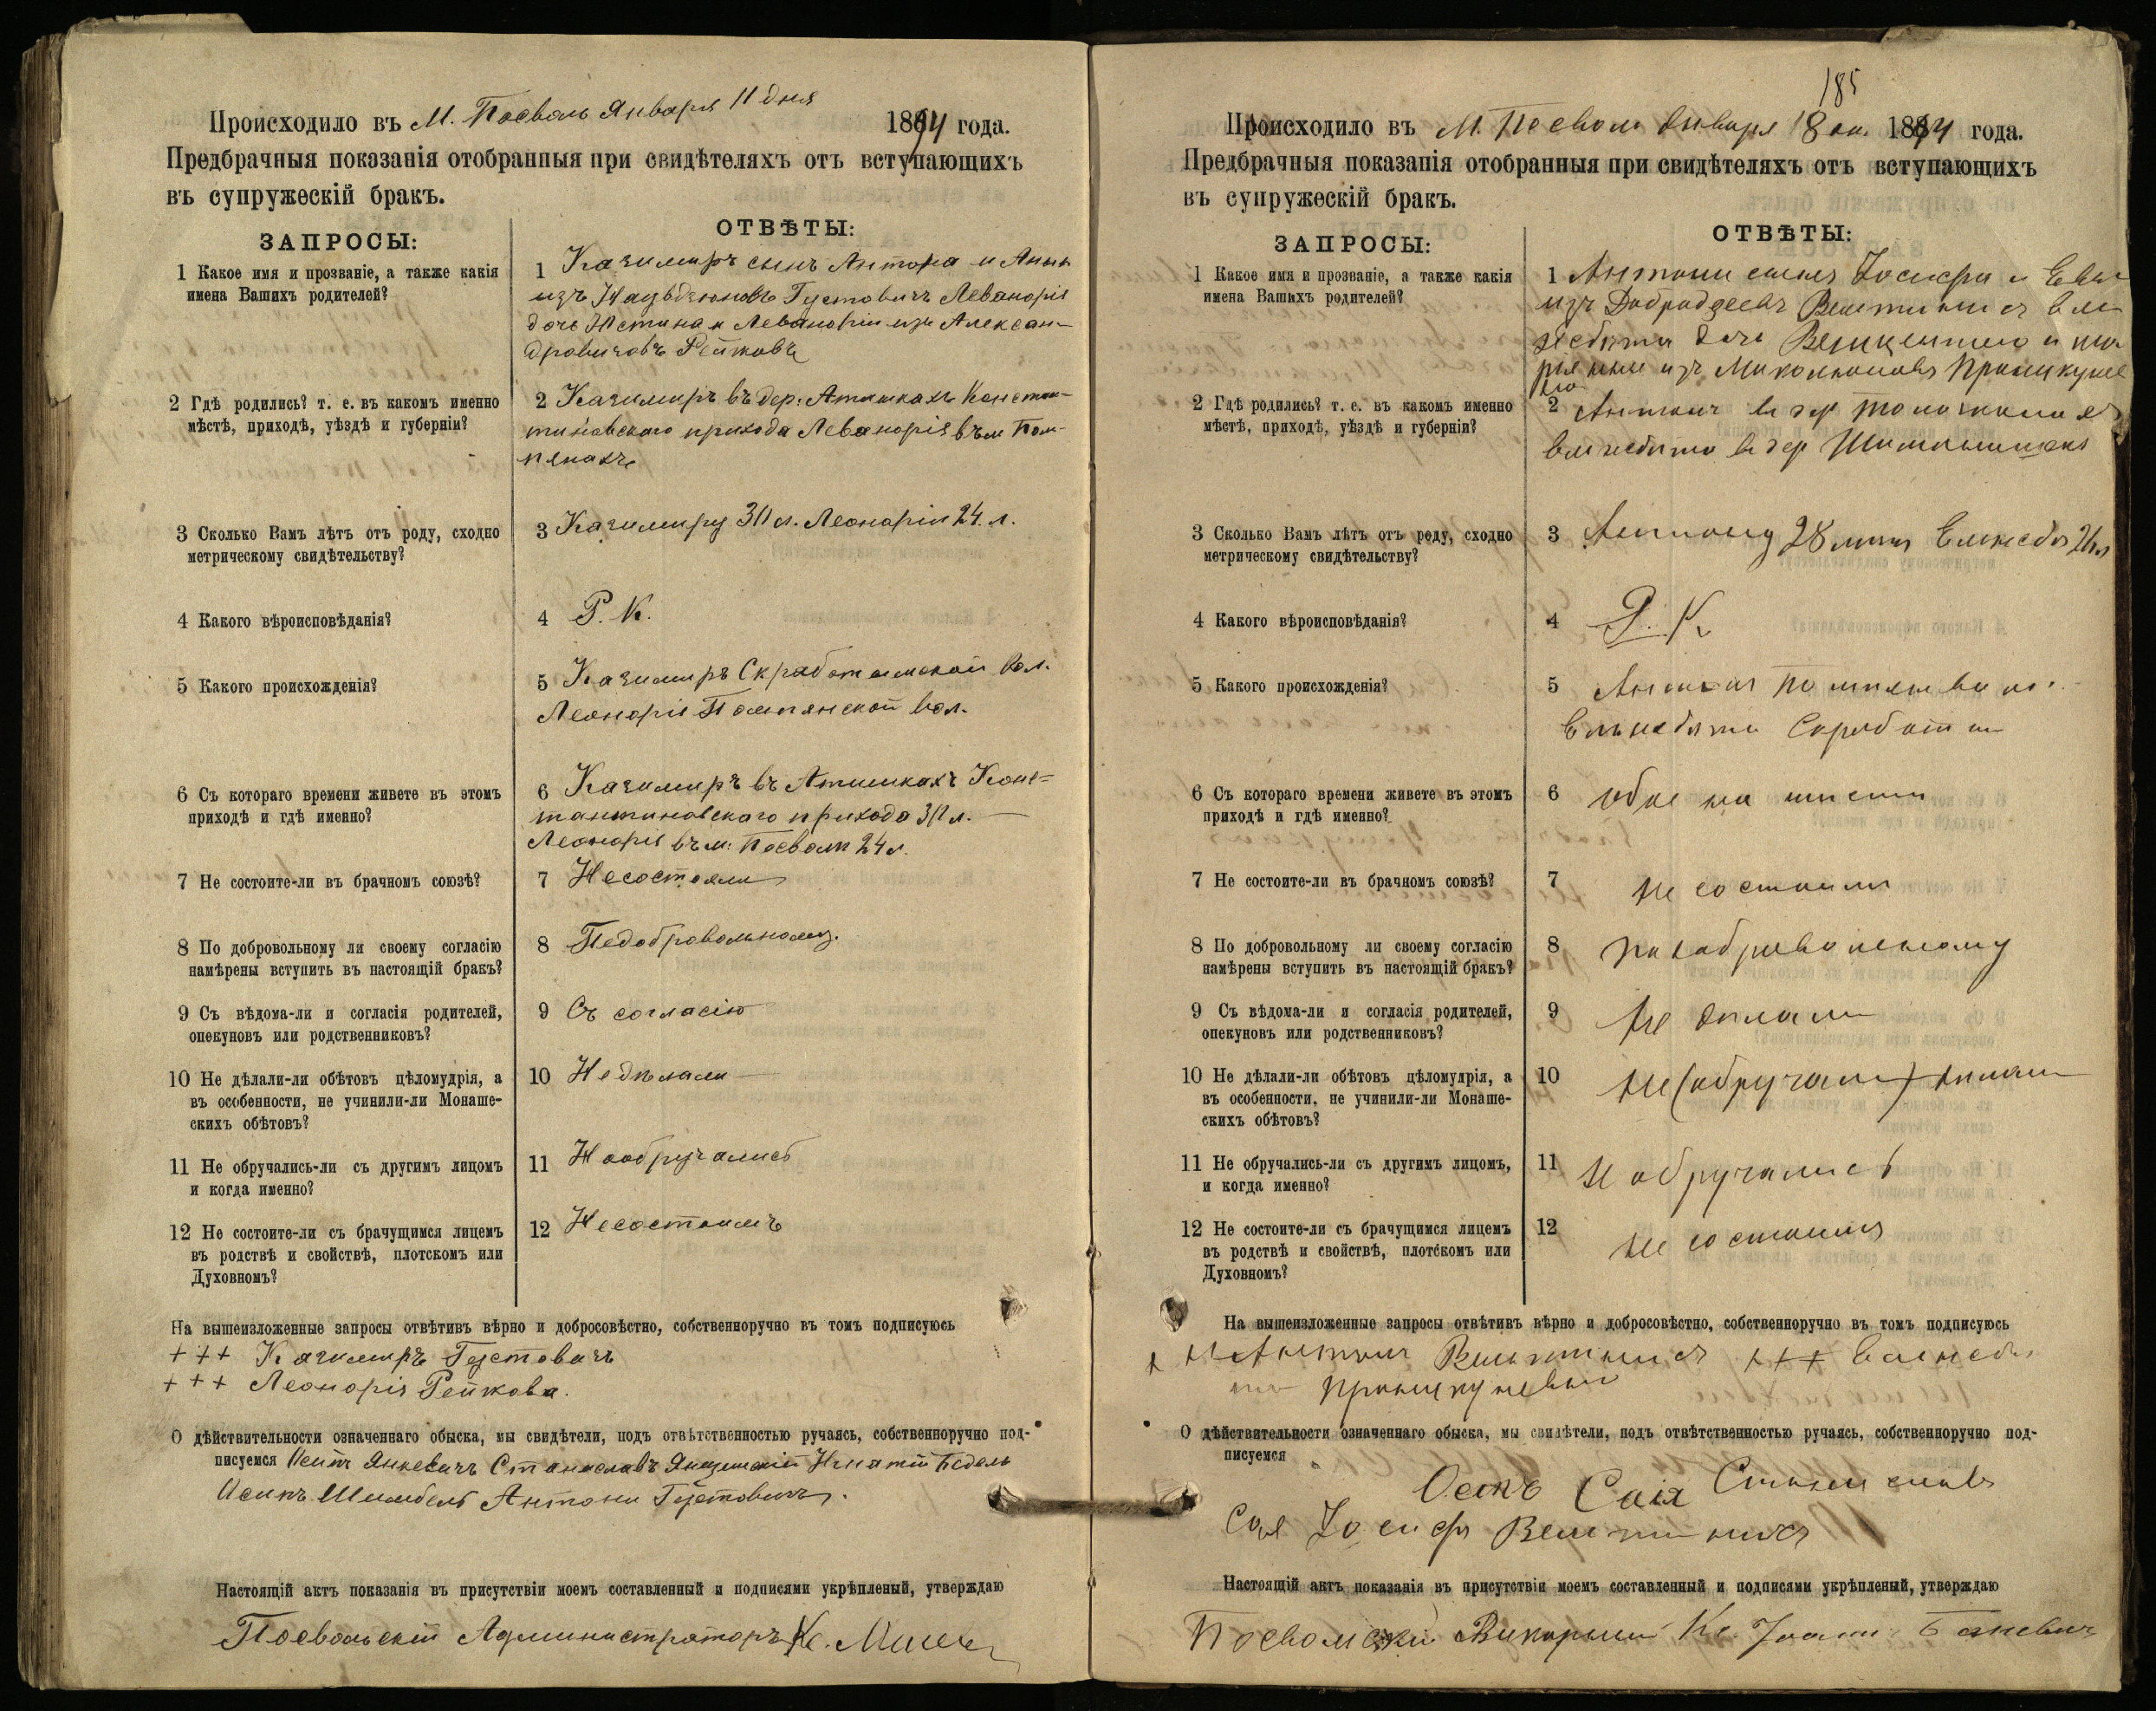 Происходило въ М. Посволь Января 11 дня 1884 года.
Предбрачныя показанія отобранныя при свидѣтеляхъ отъ вступающихъ
въ супружескій бракъ.
ЗАПРОСЫ:
ОТВѢТЫ:
1 Какое имя и прозваніе, а также какія
имена Вашихъ родителей?
1 Казимиръ сынъ Антона и Анны
изъ Густовичъ Леванорія
дочь Юстина и Леваноріи изъ Алексан-
дровичовъ Рейковъ
2 Гдѣ родились? т. е. въ какомъ именно
мѣстѣ, приходѣ, уѣздѣ и губерніи?
2 Казимиръ въ дер: Аташкахъ Констан-
тиновскаго прихода Леванорія въ м Пом-
пянахъ
3 Сколько Вамъ лѣтъ отъ роду, сходно
метрическому свидѣтельству?
3 Казимиру 30 л. Леонаріи 24. л.
4 Какого вѣроисповѣданія?
4 Р. К.
5 Какого происхожденія?
5 Казимиръ Скработишской Вол.
Леонорія Помпянской вол.
6 Съ котораго времени живете въ этомъ
приходѣ и гдѣ именно?
6 Казимиръ въ Аташкахъ Конс-
тантиновскаго прихода 30 л.
Леонорія въ м: Посволи 24 л.
7 Не состоите-ли въ брачномъ союзѣ?
7 Несостояли
8 По добровольному ли своему согласію
намѣрены вступить въ настоящій бракъ?
8 Подобровольному.
9 Съ вѣдома-ли и согласія родителей,
опекуновъ или родственниковъ?
9 Съ согласію
10 Не дѣлали-ли обѣтовъ цѣломудрія, а
въ особенности, не учинили-ли Монаше-
скихъ обѣтовъ?
10 Недѣлали
11 Не обручались-ли съ другимъ лицомъ
и когда именно?
11 Необручались
12 Не состоите-ли съ брачущимся лицемъ
въ родствѣ и свойствѣ, плотскомъ или
Духовномъ?
12 Несостоимъ
На вышеизложенные запросы отвѣтивъ вѣрно и добросовѣстно, собственноручно въ томъ подписуюсь
+++ Казимиръ Густовичъ
+++ Леонорія Рейкова.
О дѣйствительности означеннаго обыска, мы свидѣтели, подъ отвѣтственностью ручаясь, собственноручно под-
писуемся Янкевичъ Станиславъ Игнатій Бедель
Осипъ Антони Густовичъ.
Настоящій актъ показанія въ присутствіи моемъ составленный и подписями укрѣпленый, утверждаю
Посвольскій Администраторъ Кс.
185
Происходило въ М. Посволи Января 18 дн. 1884 года.
Предбрачныя показанія отобранныя при свидѣтеляхъ отъ вступающихъ
въ супружескій бракъ.
ЗАПРОСЫ:
ОТВѢТЫ:
1 Какое имя и прозваніе, а также какія
имена Вашихъ родителей?
1 Антони сынъ Іосифа и Евы
изъ Ели
забета дочь Винцентаго и Ма
ріянны изъ
2 Гдѣ родились? т. е. въ какомъ именно
мѣстѣ, приходѣ, уѣздѣ и губерніи?
2 Антони в дер
Елизабета в дер
3 Сколько Вамъ лѣтъ отъ роду, сходно
метрическому свидѣтельству?
3 Антону 28 лѣтъ
4 Какого вѣроисповѣданія?
4 Р. К.
5 Какого происхожденія?
5 Антони
Елизабета
6 Съ котораго времени живете въ этомъ
приходѣ и гдѣ именно?
6 Обое на
7 Не состоите-ли въ брачномъ союзѣ?
7 Не состояли
8 По добровольному ли своему согласію
намѣрены вступить въ настоящій бракъ?
8 Подобровольному
9 Съ вѣдома-ли и согласія родителей,
опекуновъ или родственниковъ?
9 Не дѣлали
10 Не дѣлали-ли обѣтовъ цѣломудрія, а
въ особенности, не учинили-ли Монаше-
скихъ обѣтовъ?
10 Не (обручали) дѣлали
11 Не обручались-ли съ другимъ лицомъ,
и когда именно?
11 Н обручались
12 Не состоите-ли съ брачущимся лицемъ
въ родствѣ и свойствѣ, плотскомъ или
Духовномъ?
12 Не состоимъ
На вышеизложенные запросы отвѣтивъ вѣрно и добросовѣстно, собственноручно въ томъ подписуюсь
Антони +++
О дѣйствительности означеннаго обыска, мы свидѣтели, подъ отвѣтственностью ручаясь, собственноручно под-
писуемся
Осипъ Сая Станиславъ
Сая Іосифъ
Настоящій актъ показанія въ присутствіи моемъ составленный и подписями укрѣпленый, утверждаю
Посвольскій Викарный Кс. Іоаннъ